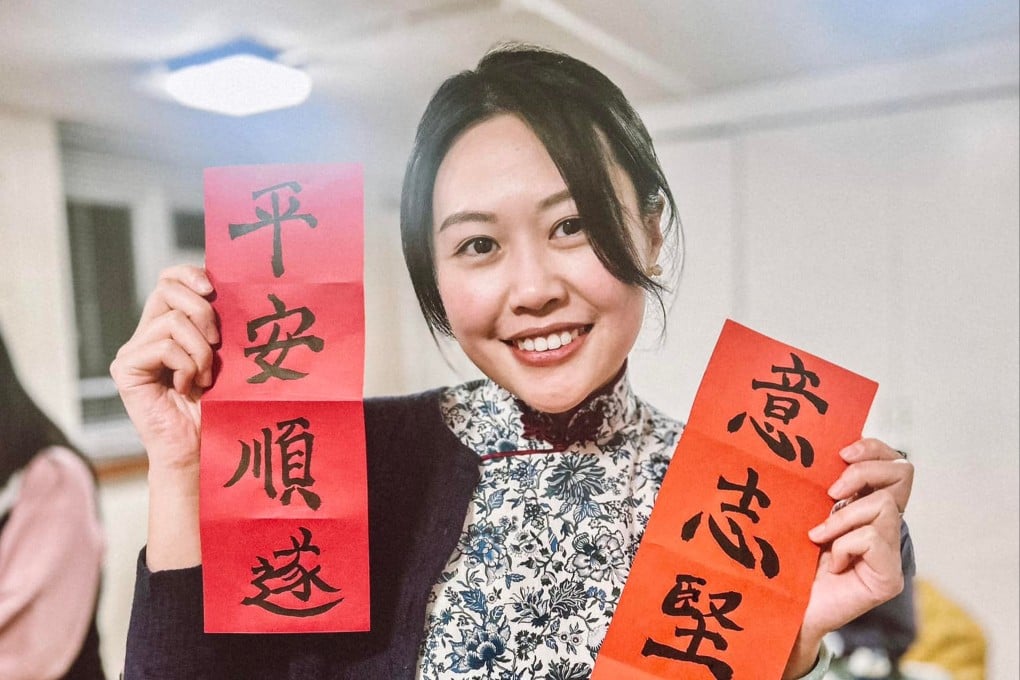 平安順遂
意志堅